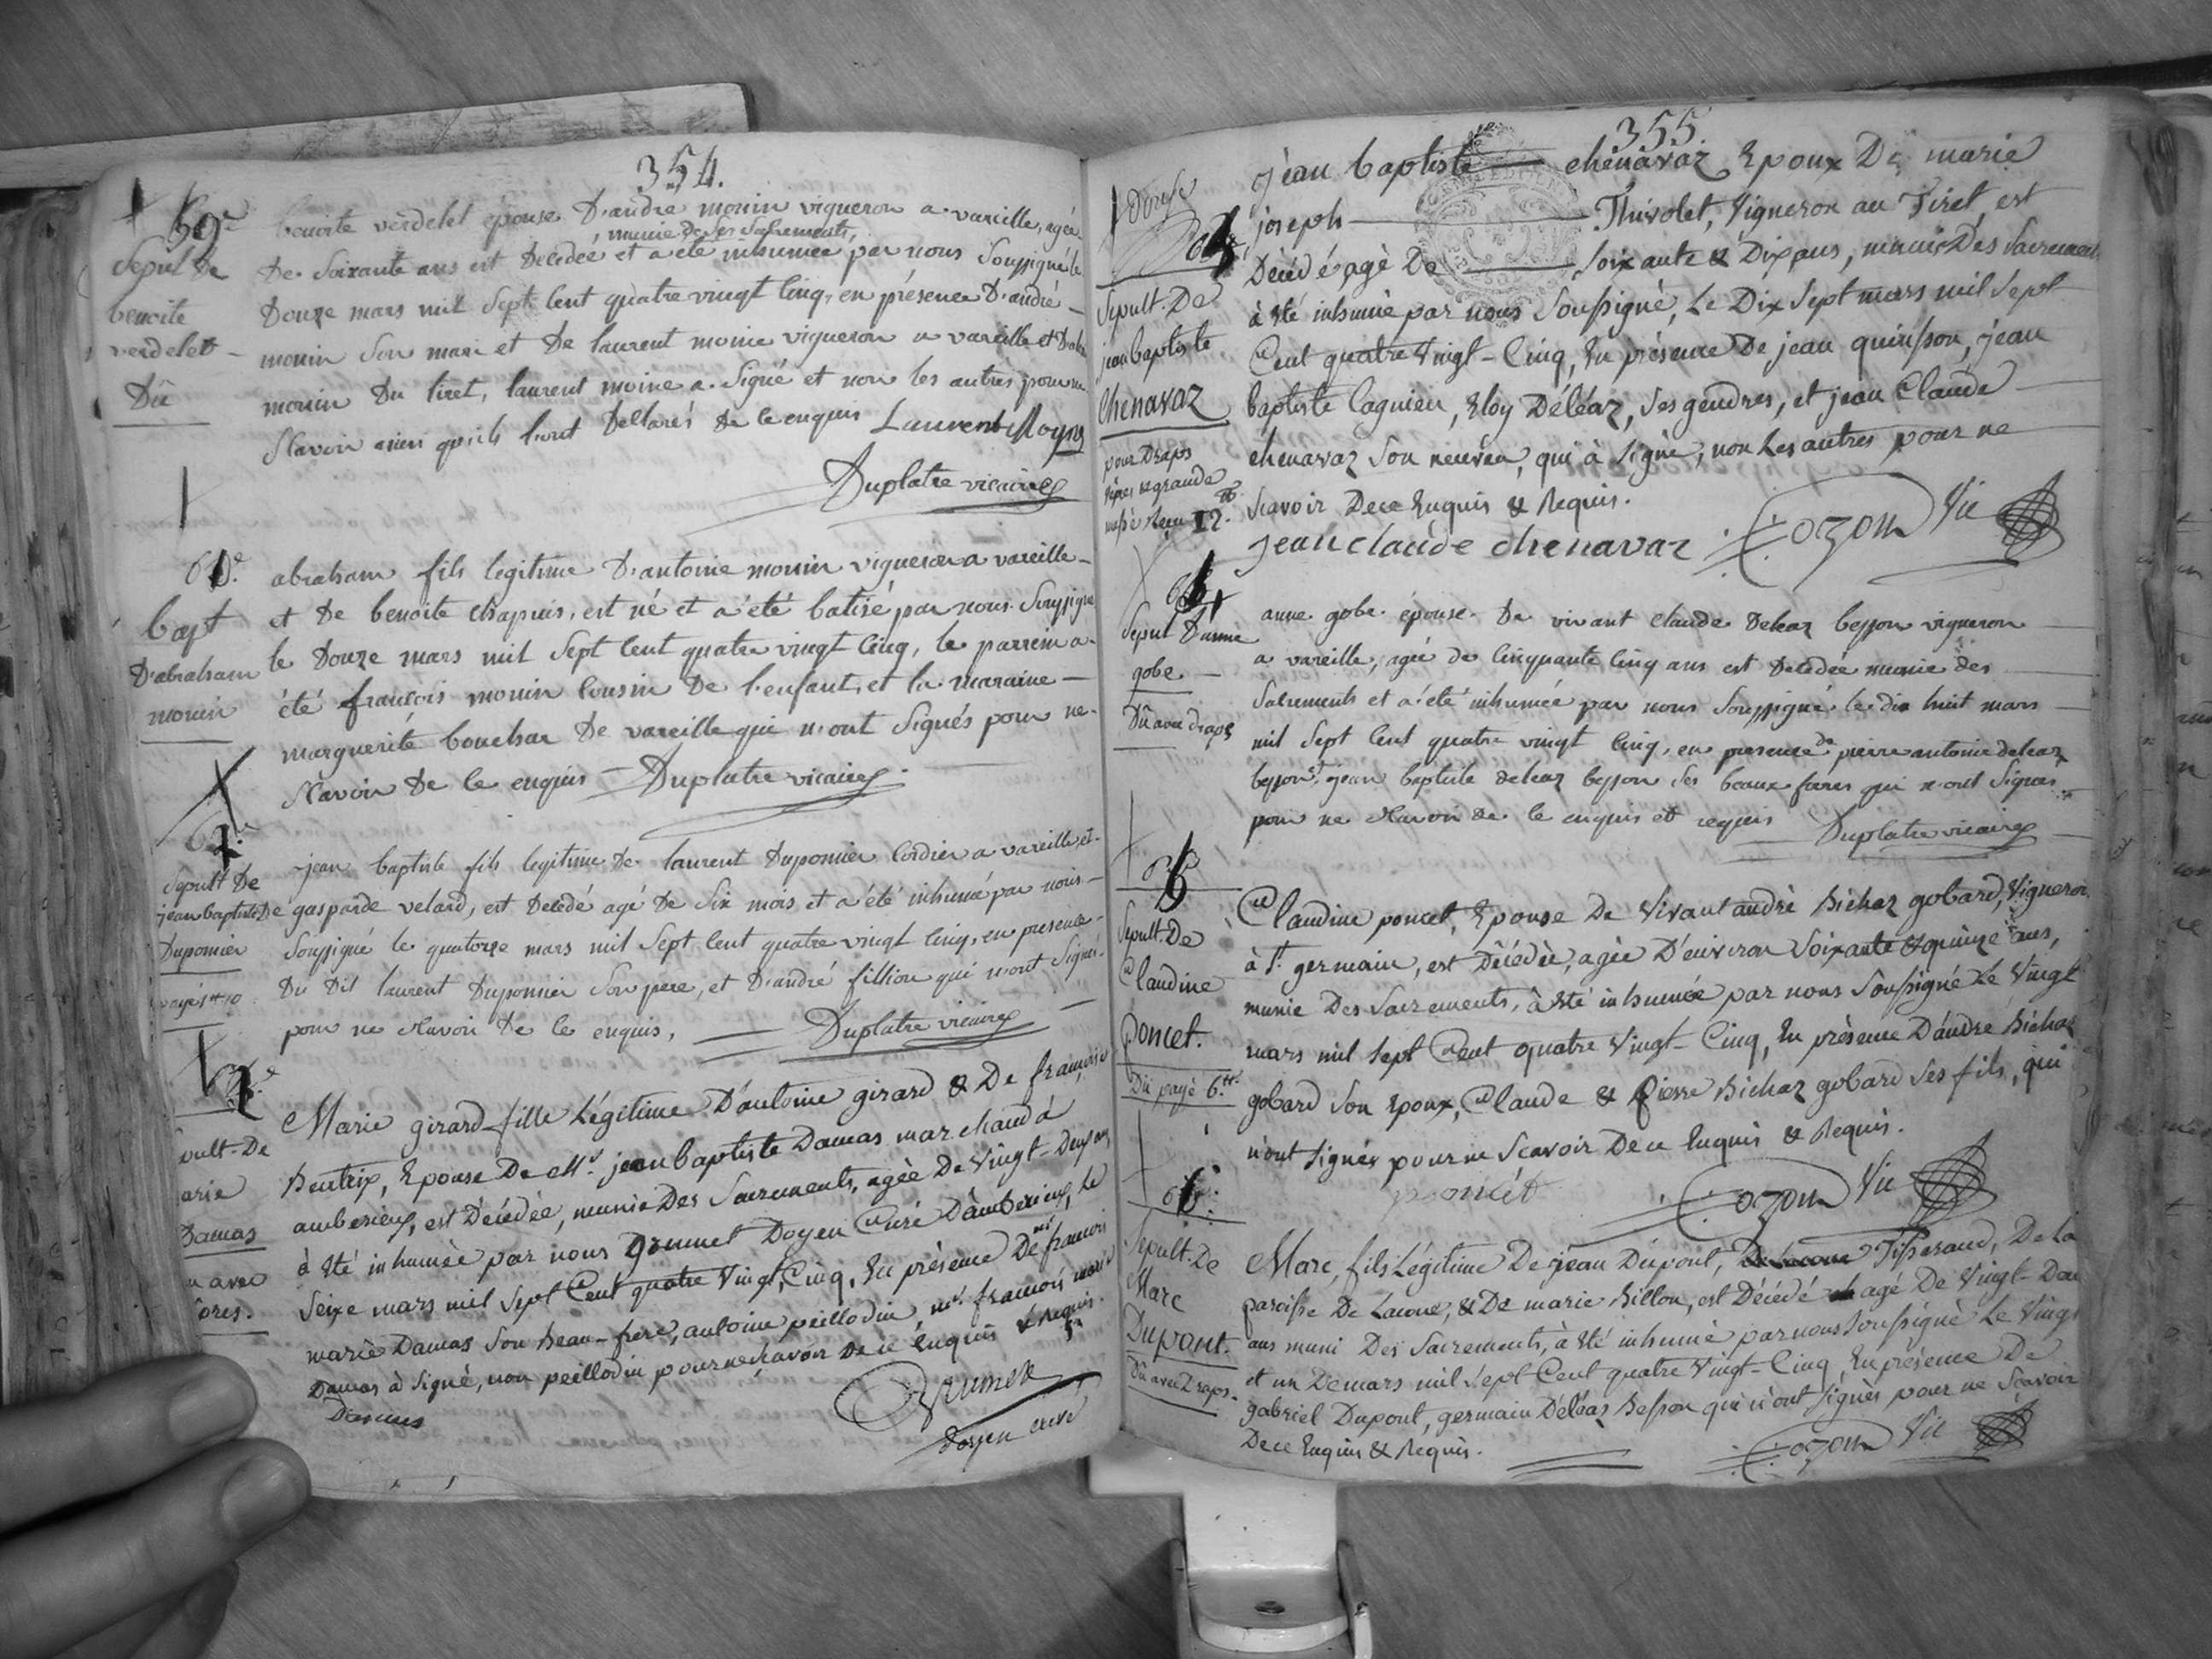 354.
59e
Sepult De
benoite
verdelet
Dû
benoite verdelet épouse D'andre monin vigneron a vareille, agée
munie De ses Sacrements,
De Soixante ans est Decedeé et a été inhumée par nous Soussigné le
Douze mars mil Sept Cent quatre vingt Cinq, en présence D'andré
monin Son mari et De laurent moine vigneron a vareille et
monin Du tiret, laurent moine a Signé et non les autres pour ne
Scavoir ainsi qu'ils l'ont Déclarés De ce enquis Laurent Moyne
Duplatre vicaire
60e.
bapt
D'abraham
monin
abraham fils legitime D'antoine monin vigneron a vareille
et De benoite Chapuis, est né et a été batisé par nous Soussigné
le Douze mars mil Sept Cent quatre vingt Cinq, le parrein a
été françois monin Cousin De l'enfant, et la maraine
marguerite bouchar De vareille qui n'ont Signés pour ne
Scavoir De ce enquis Duplatre vicaire
Sepult De
jean baptiste
Duponier
payé 1tt 10
jean baptiste fils legitime De laurent Duponier Cordier a vareille et
De gasparde velard, est Decedé agé De Six mois et a été inhumé par nous
Soussigné le quatorze mars mil Sept Cent quatre vingt Cinq, en presence
Du Dit laurent Duponier Son pere, et D'andré fillion qui n'ont Signés
pour ne Scavoir De ce enquis, Duplatre vicaire
pult. De
arie
Damas
u avec
ores.
Marie girard fille Légitime D'antoine girard & De françoise
Beutrix, Epouse De Mr. jean baptiste Damas marchand à
amberieux, est Décédée, munie Des Sacrements, agée De Vingt-Deux ans
à été inhumée par nous Grumet Doyen Curé D'amberieux, le
Seize mars mil Sept Cent quatre Vingt, Cinq, En présence De mr françois
marie Damas Son Beau-frere, antoine peillodin, mr. françois marie
Damas à Signé, non peillodin pour ne Scavoir De ce Enquis & Requis.
Damas
Grumet
Doyen curé
355.
Sepult. De
jean baptiste
Chenavaz
pour Draps
& grande
messe Reçu 12tt
jean baptiste chenavaz Epoux De marie
joseph Thivolet, Vigneron au Tiret, est
Décédé agé De Soixante & Dix ans, muni Des Sacrements
à été inhumé par nous Soussigné, Le Dix Sept mars mil Sept
Cent quatre Vingt-Cinq, En présence De jean quinsson, jean
baptiste Cagnieu, Eloy Déléaz, Ses gendres, et jean Claude
chenavaz Son neuveu, qui à Signé, non Les autres pour ne
Scavoir De ce Enquis & Requis.
jean claude chenavaz Cozon Vic
Sepul D'anne
gobe
Dû avec draps
anne gobe épouse De vivant Claude Deleaz besson vigneron
a vareille, agée de Cinquante Cinq ans est Decedée munie des
Sacrements et a été inhumée par nous Soussigné le dix huit mars
mil Sept Cent quatre vingt Cinq, en presence de pierre antoine deleaz
besson, et jean baptiste deleaz besson Ses beaux freres qui n'ont Signés
pour ne Scavoir de ce enquis et requis Duplatre vicaire
Sepult. De
Claudine
poncet.
Dû payé 6tt
Claudine poncet, Epouse De Vivant andré Bichaz gobard, Vigneron
à St. germain, est Décédée, agée D'environ Soixante & quinze ans,
munie Des Sacrements, à été inhumée par nous Soussigné Le Vingt
mars mil Sept Cent quatre Vingt-Cinq, En présence D'andré Bichaz
gobard Son Epoux, Claude & pierre Bichaz gobard Ses fils, qui
n'ont Signés pour ne Scavoir De ce Enquis & Requis.
Cozon Vic
Sepult. De
Marc
Dupont.
Dû avec Draps.
Marc, fils Légitime De jean Dupont, Tisserand, De La
paroisse De Lacoue, & De marie Billon, est Décédé agé De Vingt-Deux
ans muni Des Sacrements, à été inhumé par nous Soussigné Le Vingt
et un De mars mil Sept Cent quatre Vingt-Cinq En présence De
gabriel Dupont, germain Déléaz Besson qui n'ont Signés pour ne Scavoir
De ce Enquis & Requis. Cozon Vic